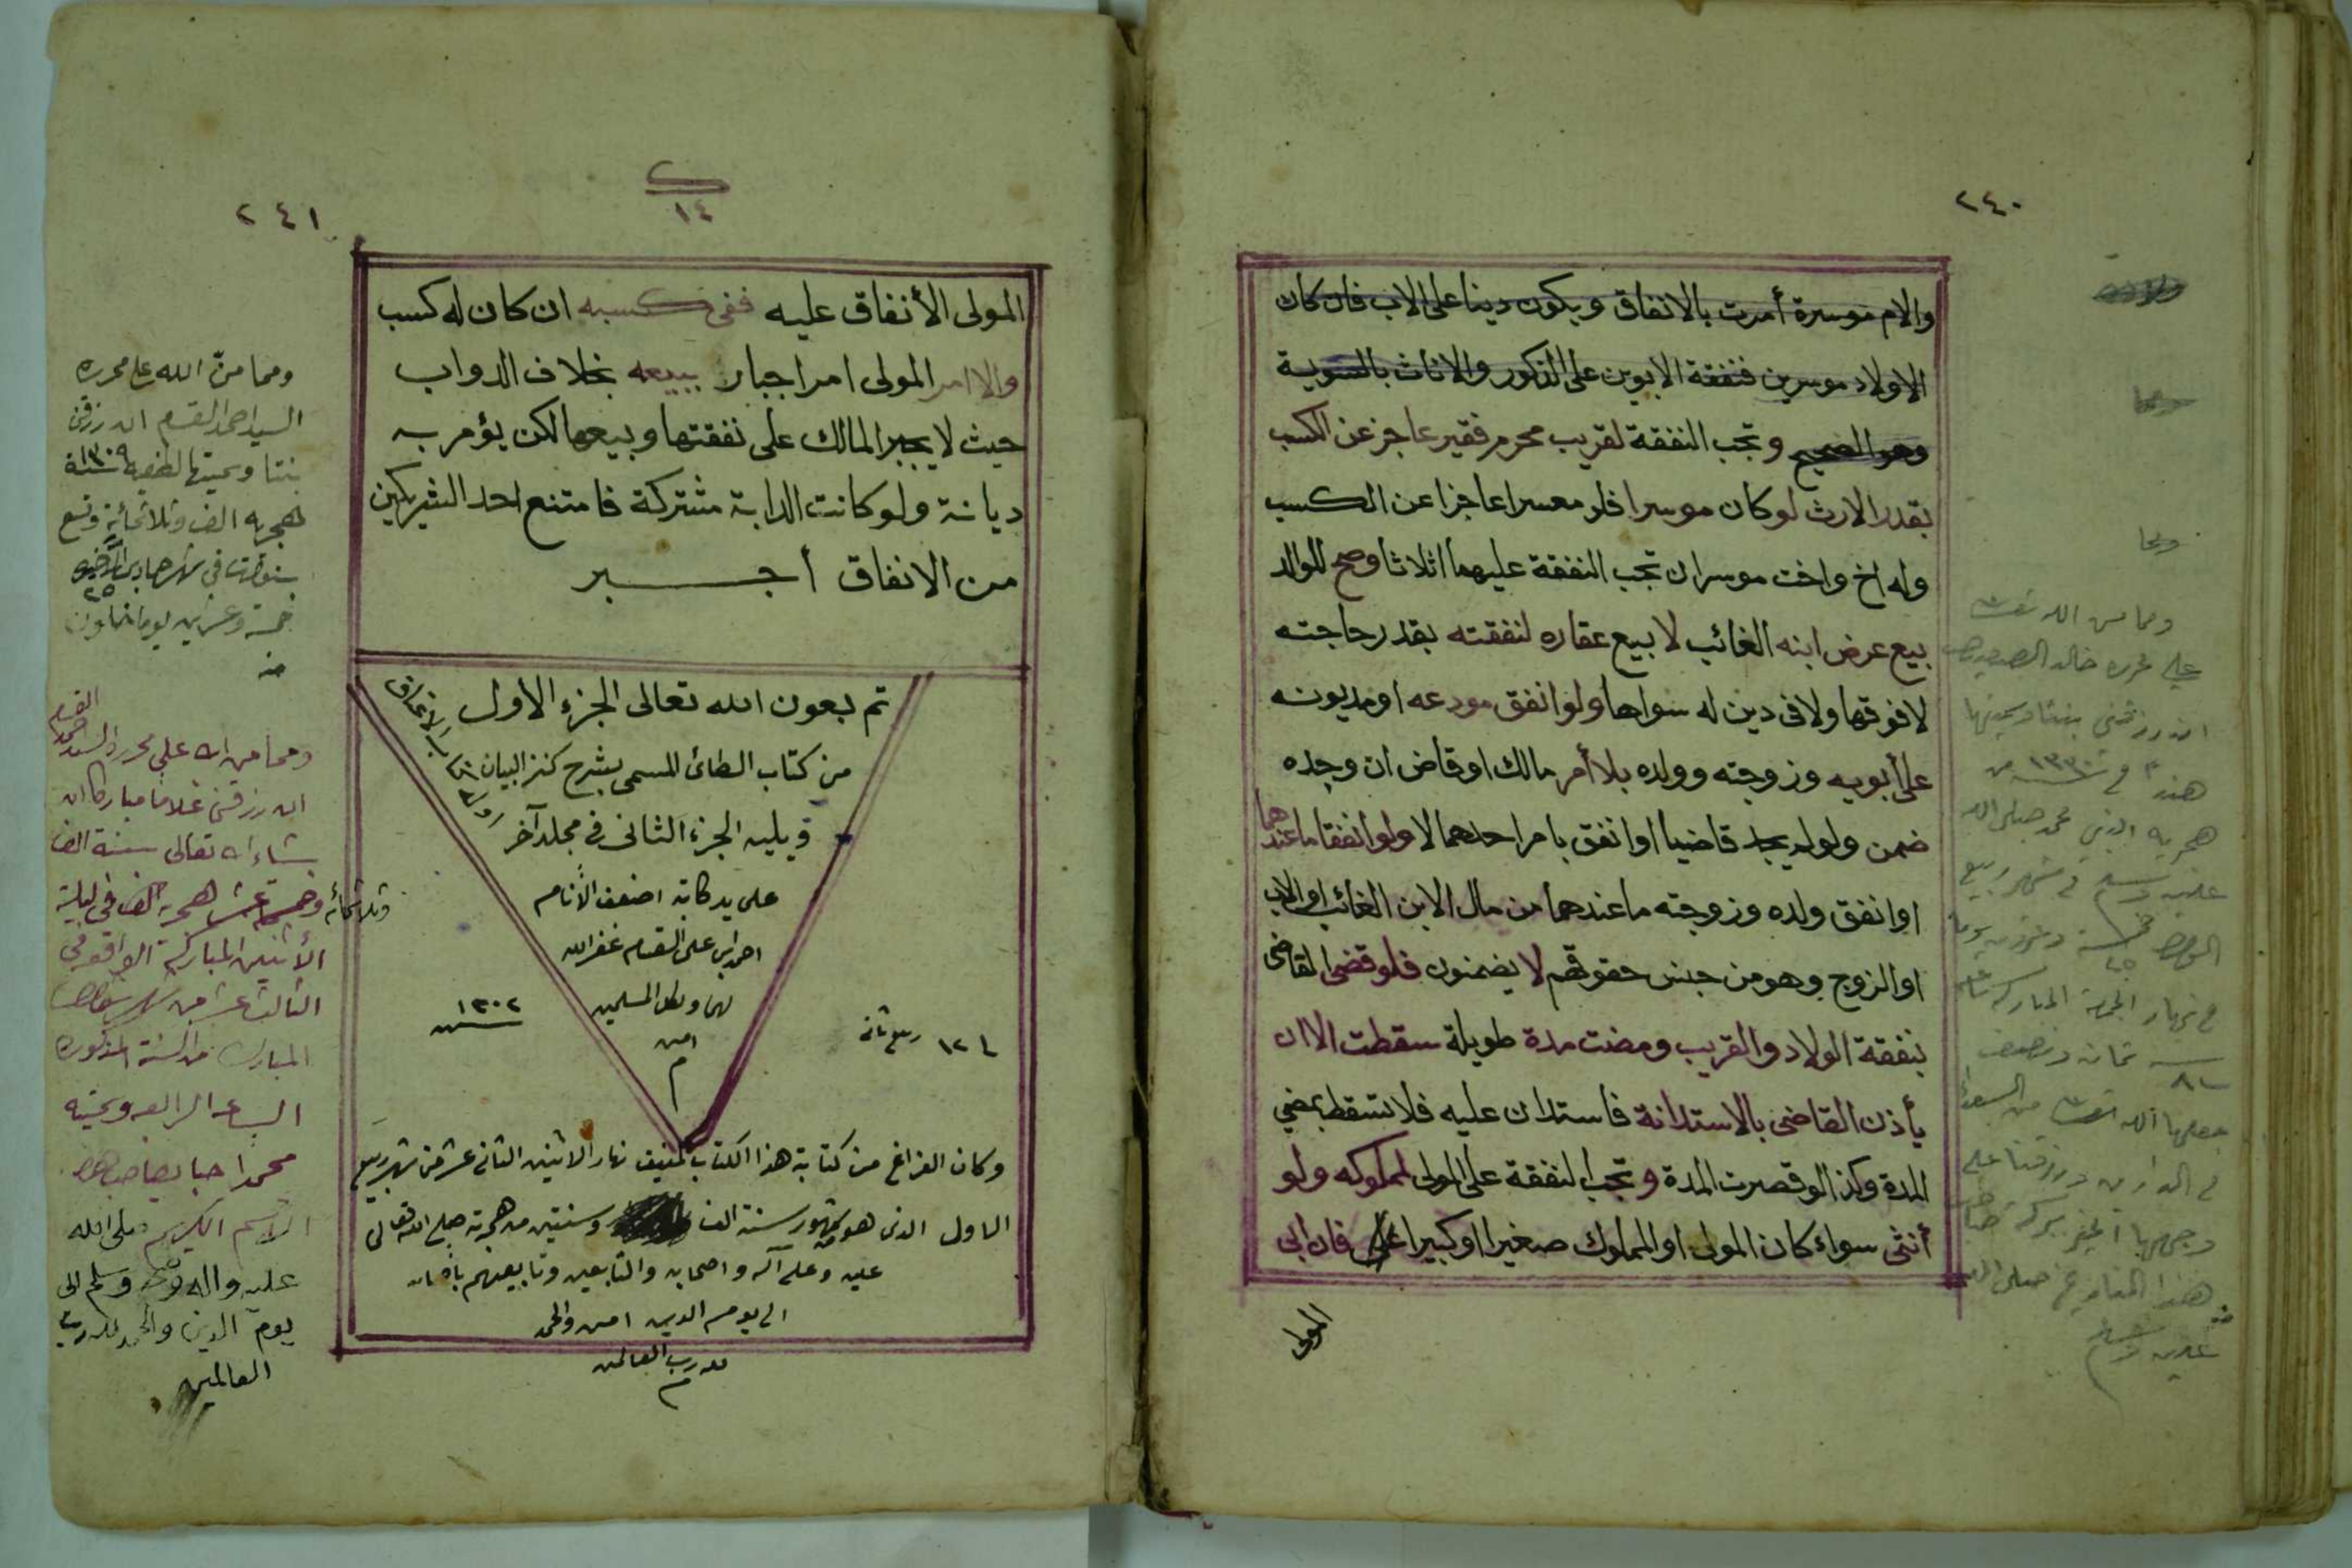 ٢٤٠
والام موسرة أمرت بالانفاق ويكون دينا على الاب فان كان
الاولاد موسرين فنفقة الابوين على الذكور والاناث بالسوية
وهو الصحيح وتجب النفقة لقريب محرم فقير عاجز عن الكسب
بقدر الارث لو كان موسرا فلو معسرا عاجزا عن الكسب
وله اخ واخت موسران تجب النفقة عليهما اثلاثا وصح للوالد
بيع عرض ابنه الغائب لا بيع عقاره لنفقته بقدر حاجته
لا فوقها ولا فى دين له سواها ولو انفق مودعه او مديونه
على أبويه وزوجته وولده بلا أمر مالك او قاض ان وجده
ضمن ولو لم يجد قاضيا او انفق بامر احدهما لا ولو انفقا ما عندهما
او انفق ولده وزوجته ما عندهما من مال الابن الغائب او الاب
او الزوج وهو من جنس حقوقهم لا يضمنون فلو قضى القاضى
بنفقة الولاد والقريب ومضت مدة طويلة سقطت الا ان
يأذن القاضى بالاستدانة فاستدان عليه فلا تسقط بمضي
المدة وكذا لو قصرت المدة وتجب النفقة على المولى لمملوكه ولو
أنثى سواء كان المولى او المملوك صغيرا او كبيرا فان ابى
المولى
ومما من الله تعالى
على محرره خالد
ان رزقنى بنتا وسميتها
هند فى سنة ١٣٣٠ من
هجرية النبى محمد صلى الله
عليه وسلم فى شهر ربيع
٢٤١
١٤
المولى الأنفاق عليه ففى كسبه ان كان له كسب
والا امر المولى امر اجبار ببيعه بخلاف الدواب
حيث لا يجبر المالك على نفقتها وبيعها لكن يؤمر به
ديانة ولو كانت الدابة مشتركة فامتنع احد الشريكين
من الانفاق أجبر
تم بعون الله تعالى الجزء الاول
من كتاب الطائى المسمى بشرح كنز البيان
ويليه الجزء الثانى فى مجلد آخر
اوله كتاب الاعتاق
على يد كاتبه اضعف الأنام
احمد ابن على القسام غفر الله
لهما ولكل المسلمين
امين
م
١٢ ربيع ثانى
سنة ١٣٠٢
وكان الفراغ من كتابة هذا الكتاب المنيف نهار الاثنين الثانى عشر من شهر ربيع
الاول الذى هو من شهور سنة الف وسنتين من هجرته صلى الله تعالى
عليه وعلى آله واصحابه والتابعين وتابعيهم باحسان
الى يوم الدين امين والحمد
لله رب العالمين
م
ومما منّ الله على محرره
السيد احمد القسام ان رزقنى
بنتا وسميتها لطفيه سنة ١٣٠٩
هجريه الف وثلاثمائة وتسع
خمسة وعشرين يوما
ومما من الله على محرره السيد احمد القسام
ان رزقنى غلاما مباركا ان
شاء الله تعالى سنة الف
وثلاثمائة وخمسة عشر هجرية الف فى ليلة
الأثنين المباركة الواقع فى
الثالث عشر من شهر
المبارك من السنة المذكورة
الساعه الرابعه وسميته
محمدا حبا بصاحب هذا
الاسم الكريم صلى الله
عليه واله وسلم الى
يوم الدين والحمد لله رب
العالمين